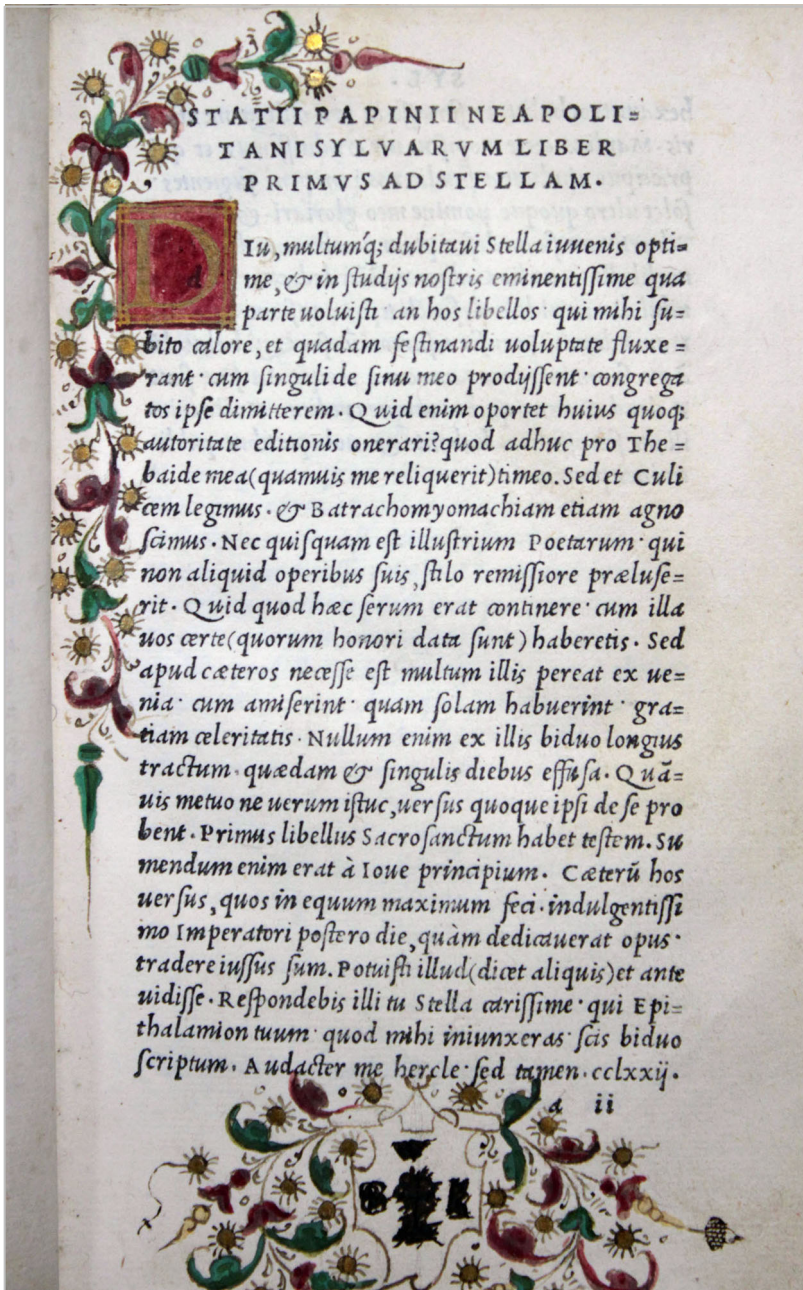 STATII PAPINII NEAPOLI=
TANI SYLVARVM LIBER
PRIMVS AD STELLAM.
D
dIú, multumq́; dubitaui Stella iuuenis opti=
me, & in ſtudijs noſtris eminentiſſime qua
parte uoluiſti an hos libellos· qui mihi ſu=
bito calore, et quadam feſtinandi uoluptate fluxe=
rant· cum ſinguli de ſinu meo prodijſſent· congrega
tos ipſe dimitterem. Quid enim oportet huius quoq;
autoritate editionis onerari? quod adhuc pro The=
baide mea (quamuis me reliquerit) timeo. Sed et Culi
cem legimus. & Batrachomyomachiam etiam agno
ſcimus. Nec quiſquam eſt illuſtrium Poetarum· qui
non aliquid operibus ſuis, ſtilo remiſſiore præluſe=
rit. Quid quod hæc ſerum erat continere· cum illa
uos certe (quorum honori data ſunt) haberetis. Sed
apud cæteros neceſſe eſt multum illis pereat ex ue=
nia· cum amiſerint· quam ſolam habuerint· gra=
tiam celeritatis. Nullum enim ex illis biduo longius
tractum. quædam & ſingulis diebus effuſa. Quā=
uis metuo ne uerum iſtuc, uerſus quoque ipſi de ſe pro
bent. Primus libellus Sacroſanctum habet teſtem. Su
mendum enim erat à Ioue principium. Cæterū hos
uerſus, quos in equum maximum feci. indulgentiſſi
mo Imperatori poſtero die, quàm dedicauerat opus·
tradere iuſſus ſum. Potuiſti illud (dicet aliquis) et ante
uidiſſe. Reſpondebis illi tu Stella cariſſime· qui Epi=
thalamion tuum· quod mihi iniunxeras· ſcis biduo
ſcriptum. Audacter me hercle· ſed tamen. cclxxij.
a ii